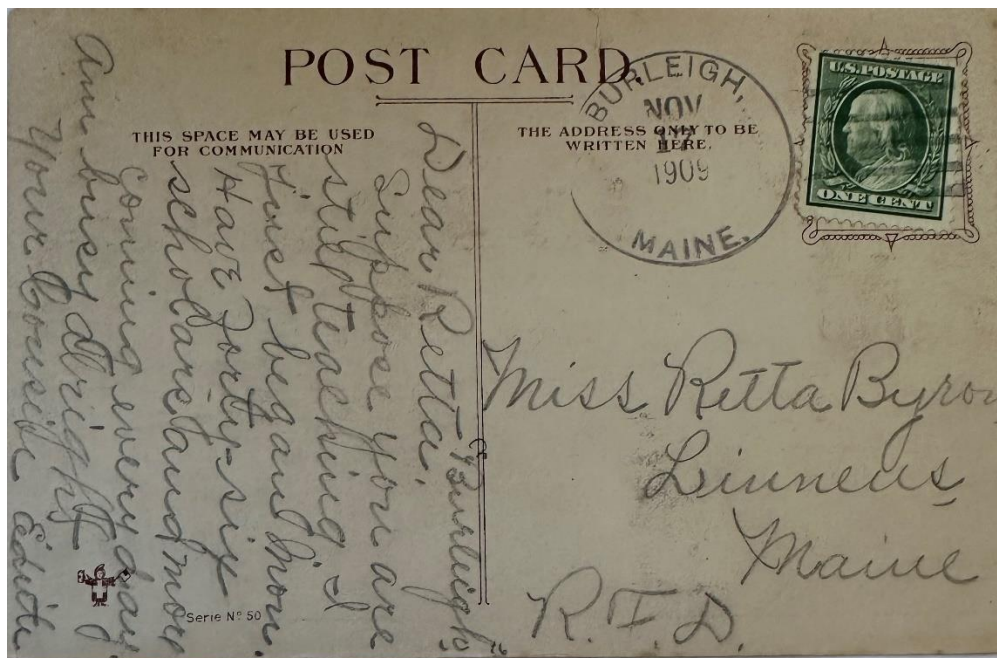 POST CARD
THIS SPACE MAY BE USED
FOR COMMUNICATION
THE ADDRESS ONLY TO BE
WRITTEN HERE.
BURLEIGH,
NOV
17
1909
MAINE.
U.S. POSTAGE
ONE CENT
"Burleigh"
Dear Retta,
Suppose you are
still teaching. I
first began Mon.
Have forty-six
scholars and more
coming every day.
Am busy alright
Your Cousin Edith
Miss Retta Byron
Linneus
Maine
R.F.D.
Serie No 50